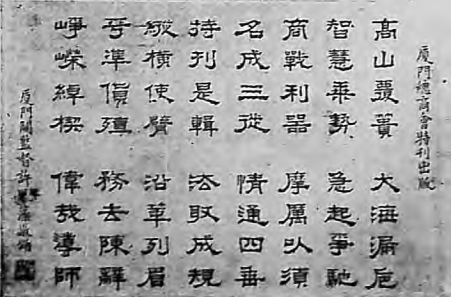 厦門總商會特刊出版
高山覆簣 大海漏卮
智慧乘勢 急起爭馳
商戰利器 摩厲以須
名成三從 情通四垂
特刊是輯 法取成規
縱橫使臂 沿革列眉
平準殖 務去陳辭
崢嶸綽楔 偉哉導師
厦門關監督許藻敬頌